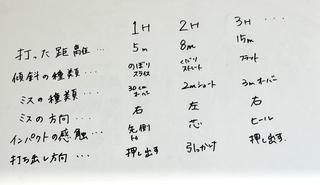 1H 2H 3H ...
打った距離 ... 5m 8m 15m
傾斜の種類 ... のぼり スライス くだり ストレート フラット
ミスの種類 ... 30cm オーバー 2mショート 3mオーバー
ミスの方向 ... 右 左 右
インパクトの感触 ... 先側 トゥ 芯 ヒール
打ち出し方向 ... 押し出す 引っかけ 押し出す